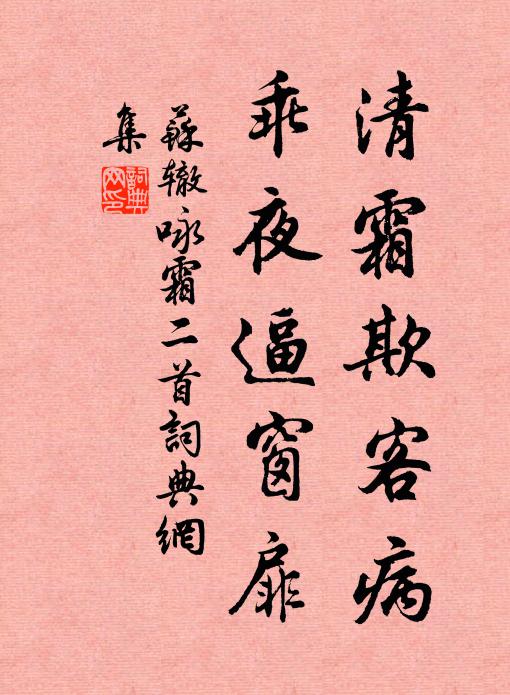 清霜欺客病
乖夜逼窗扉
蘇辙咏霜二首詞典網
集
詞典网印